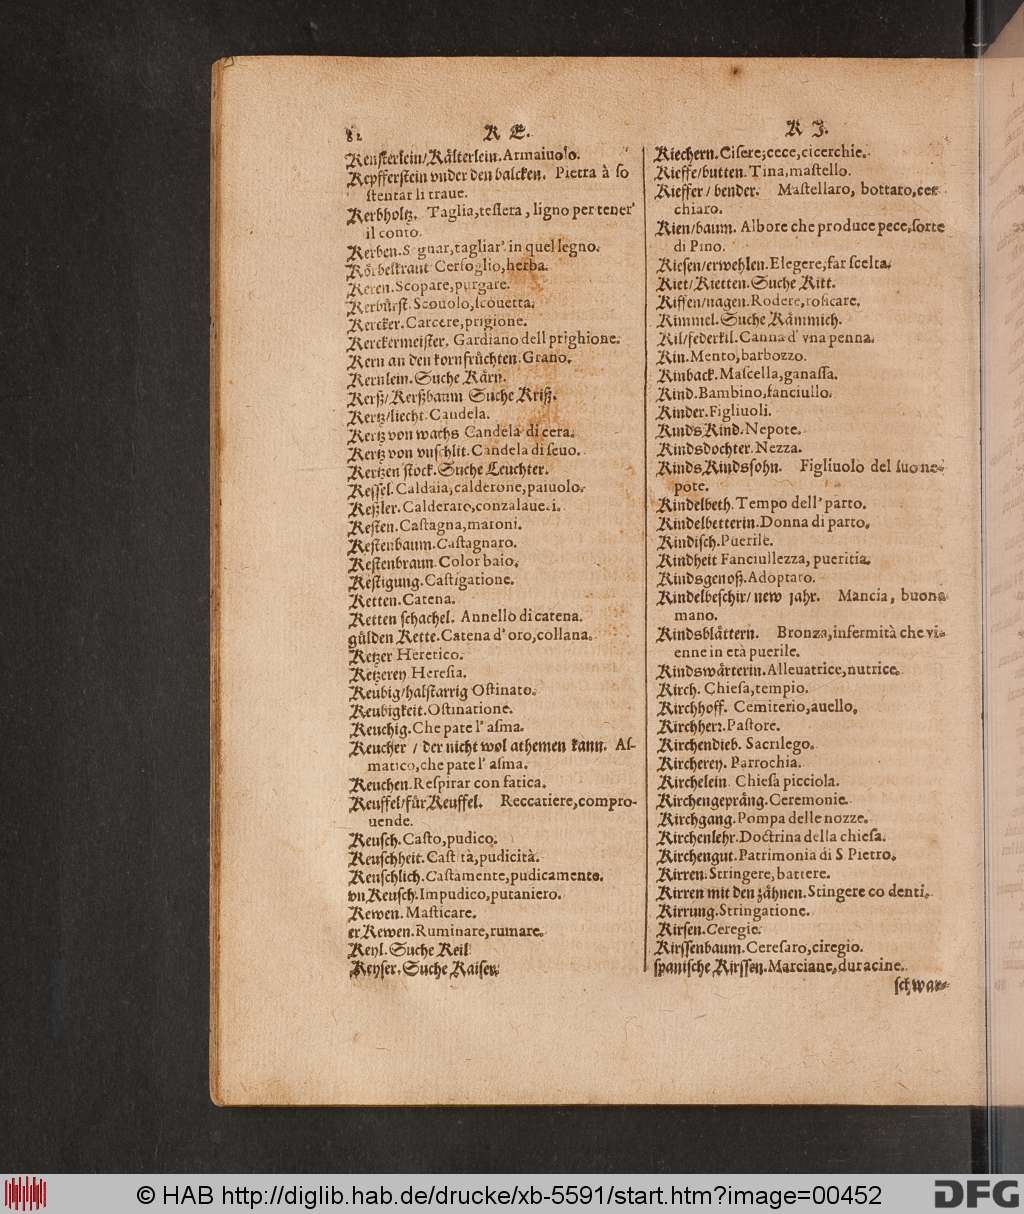 82 K E.
Kensterlein/Kålterlein. Armaiuolo.
Kepfferstein vnder den balcken. Pietra à so
stentar li traue.
Kerbholtz. Taglia, tessera, ligno per tener'
il conto.
Kerben. Segnar, tagliar' in quel segno.
Körbelkraut Cerfoglio, herba.
Keren. Scopare, purgare.
Kerbůrst. Scouolo, scouetta.
Kercker. Carcere, prigione.
Kerckermeister. Gardiano dell prighione.
Kern an den kornfrůchten. Grano.
Kernlein. Suche Kårn.
Kerß/Kerßbaum Suche Kriß.
Kertz/liecht. Candela.
Kertz von wachs Candela di cera.
Kertz von vnschlit. Candela di seuo.
Kertzen stock. Suche Leuchter.
Kessel. Caldaia, calderone, paiuolo.
Keßler. Calderaro, conzalaueci.
Kesten. Castagna, maroni.
Kestenbaum. Castagnaro.
Kestenbraun. Color baio.
Kestigung. Castigatione.
Ketten. Catena.
Ketten schachel. Annello di catena.
gůlden Kette. Catena d' oro, collana.
Ketzer Heretico.
Ketzerey Heresia.
Keubig/halstarrig Ostinato.
Keubigkeit. Ostinatione.
Keuchig. Che pate l' asma.
Keucher / der nicht wol athemen kann. As-
matico, che pate l' asma.
Keuchen. Respirar con fatica.
Keuffel/fůrKeuffel. Reccatiere, compro-
uende.
Keusch. Casto, pudico.
Keuschheit. Castità, pudicità.
Keuschlich. Castamente, pudicamente.
vnKeusch. Impudico, putaniero.
Kewen. Masticare.
erKewen. Ruminare, rumare.
Keyl. Suche Keil
Keyser. Suche Kaiser.
K J.
Kiechern. Cisere, cece, cicerchie.
Kieffe/butten. Tina, mastello.
Kieffer / bender. Mastellaro, bottaro, cer
chiaro.
Kien/baum. Albore che produce pece, sorte
di Pino.
Kiesen/erwehlen. Elegere, far scelta.
Kiet/Kietten. Suche Kitt.
Kiffen/nagen. Rodere, rosicare.
Kimmel. Suche Kåmmich.
Kil/federkil. Canna d' vna penna.
Kin. Mento, barbozzo.
Kinback. Mascella, ganassa.
Kind. Bambino, fanciullo.
Kinder. Figliuoli.
Kinds Kind. Nepote.
Kindsdochter. Nezza.
Kinds, Kindssohn. Figliuolo del suo ne-
pote.
Kindelbeth. Tempo dell' parto.
Kindelbetterin. Donna di parto.
Kindisch. Puerile.
Kindheit Fanciullezza, pueritia.
Kindsgenoß. Adoptato.
Kindelbeschir/ new jahr. Mancia, buona
mano.
Kindsblåttern. Bronza, infermità che vi-
enne in età puerile.
Kindswårterin. Alleuatrice, nutrice.
Kirch. Chiesa, tempio.
Kirchhoff. Cemiterio, auello.
Kirchherr. Pastore.
Kirchendieb. Sacrilego.
Kircherey. Parrochia.
Kirchelein. Chiesa picciola.
Kirchengepräng. Ceremonie.
Kirchgang. Pompa delle nozze.
Kirchenlehr. Doctrina della chiesa.
Kirchengut. Patrimonia di S Pietro.
Kirren. Stringere, battere.
Kirren mit den zåhnen. Stingere co denti.
Kirrung. Stringatione.
Kirsen. Ceregie.
Kirssenbaum. Ceresaro, ciregio.
spanische Kirssen. Marciane, duracine.
schwar-
© HAB http://diglib.hab.de/drucke/xb-5591/start.htm?image=00452
DFG